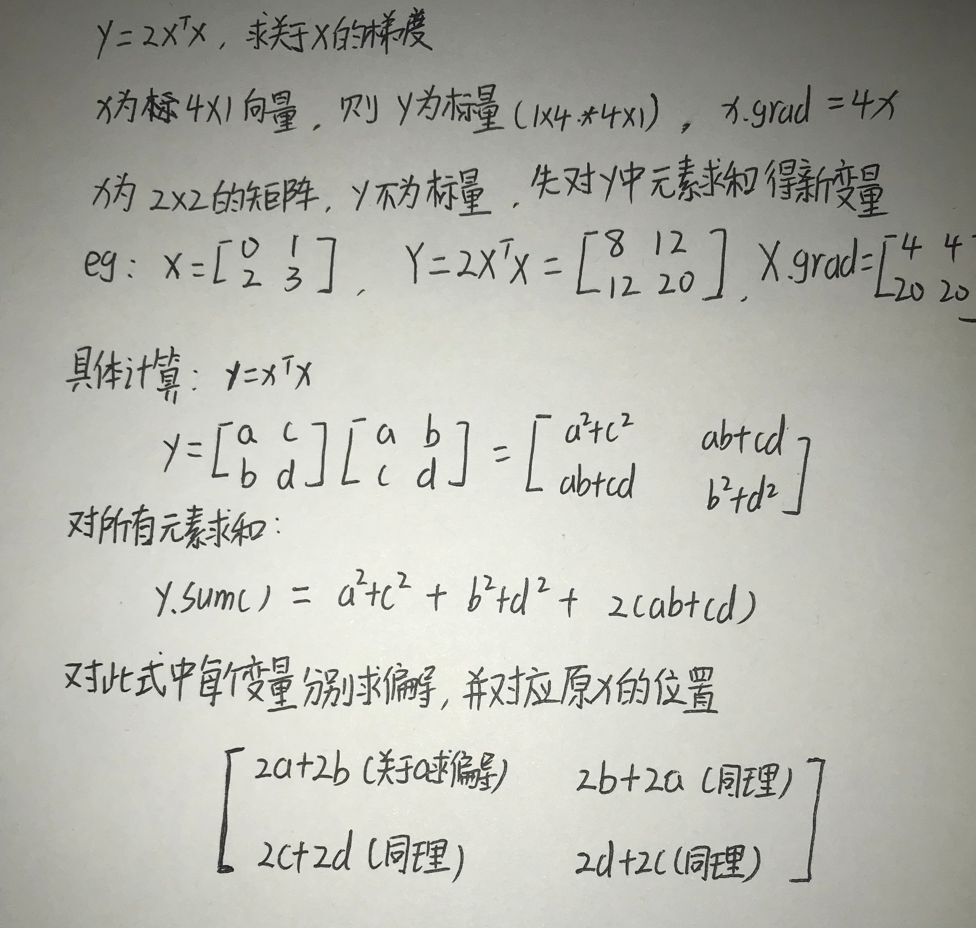 y=2xᵀx，求关于x的梯度
x为标4×1向量，则 y为标量(1×4.*4×1)，x.grad=4x
x为 2×2的矩阵，y不为标量，先对y中元素求和得新变量
eg: X=[0 1; 2 3], Y=2XᵀX=[8 12; 12 20], X.grad=[4 4; 20 20]
具体计算: y=xᵀx
y=[a c; b d][a b; c d] = [a²+c² ab+cd; ab+cd b²+d²]
对所有元素求和:
y.sum() = a²+c² + b²+d² + 2(ab+cd)
对此式中每个变量分别求偏导，并对应原x的位置
[2a+2b (关于a求偏导) 2b+2a (同理)
2c+2d (同理) 2d+2c (同理)]